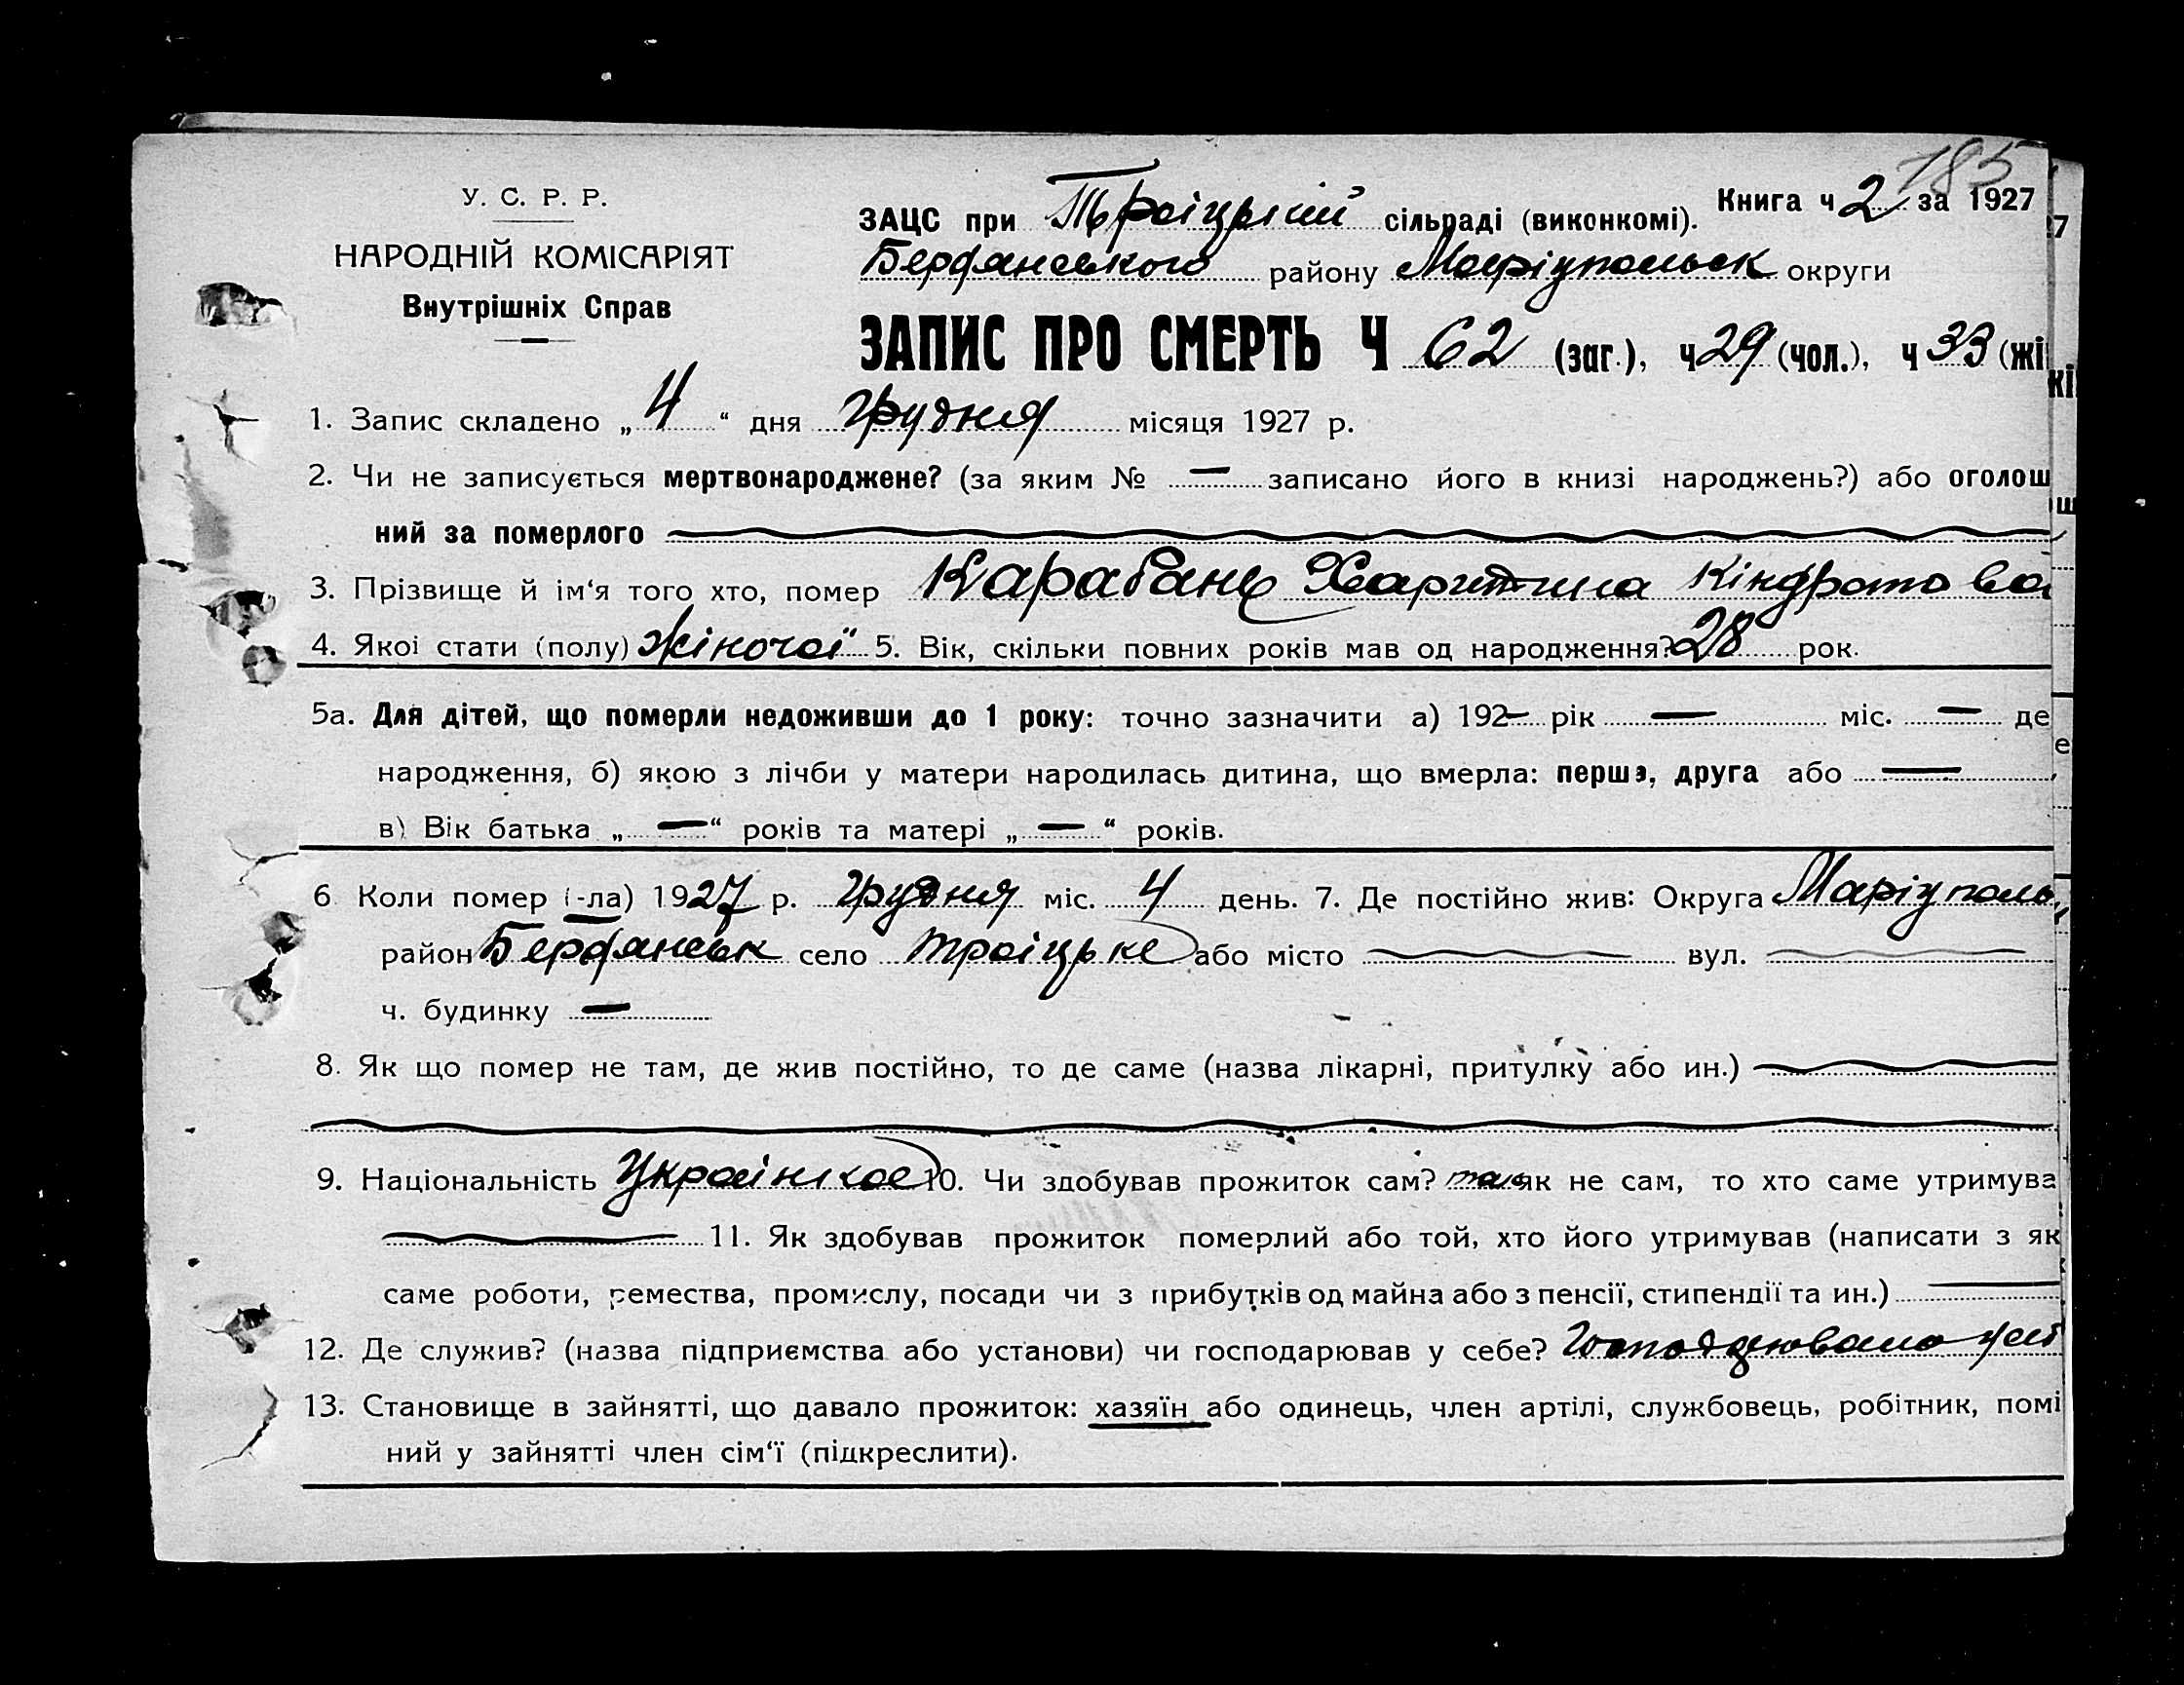 185
У. С. Р. Р.
НАРОДНІЙ КОМІСАРІЯТ
Внутрішніх Справ
ЗАЦС при Троіцькій сільраді (виконкомі). Книга ч 2 за 1927
Бердянського району Маріупольськ округи
ЗАПИС ПРО СМЕРТЬ Ч 62 (заг.), ч 29 (чол.), ч 33 (жі
1. Запис складено „ 4 “ дня грудня місяця 1927 р.
2. Чи не записується мертвонароджене? (за яким № — записано його в книзі народжень?) або оголош
ний за померлого
3. Прізвище й ім‘я того хто, помер Карабань Харитина Кіндратова
4. Якої стати (полу) жіночої 5. Вік, скільки повних років мав од народження? 28 рок.
5а. Для дітей, що померли недоживши до 1 року: точно зазначити а) 192— рік — міс. — де
народження, б) якою з лічби у матери народилась дитина, що вмерла: перша, друга або —
в) Вік батька „ — “ років та матері „ — “ років.
6 Коли помер (-ла) 1927 р. грудня міс. 4 день. 7. Де постійно жив: Округа Маріуполь
район Бердянськ село Троіцьке або місто вул.
ч. будинку —
8. Як що помер не там, де жив постійно, то де саме (назва лікарні, притулку або ин.)
9. Національність Українка 10. Чи здобував прожиток сам? так як не сам, то хто саме утримува
11. Як здобував прожиток померлий або той, хто його утримував (написати з як
саме роботи, ремества, промислу, посади чи з прибутків од майна або з пенсії, стипендії та ин.)
12. Де служив? (назва підприємства або установи) чи господарював у себе?
13. Становище в зайнятті, що давало прожиток: хазяїн або одинець, член артілі, службовець, робітник, помі
ний у зайнятті член сім‘ї (підкреслити).